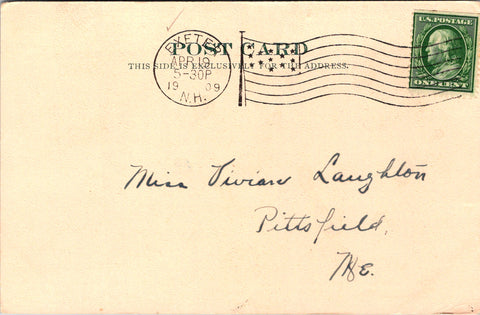 POST CARD
THIS SIDE IS EXCLUSIVELY FOR THE ADDRESS.
EXETER
APR 19
5-30P
19 09
N.H.
U.S. POSTAGE
ONE CENT
Miss Vivian Laughton
Pittsfield,
Me.